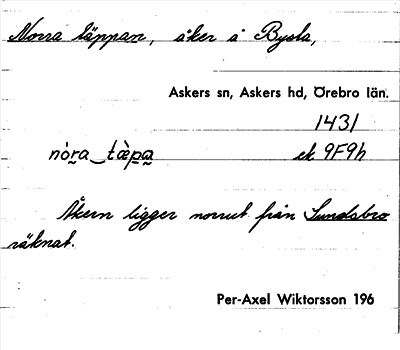 Norra täppan, åker å Bysla,
Askers sn, Askers hd, Örebro län.
1431
nòra‿tæ̀pa ek 9F9h
Åkern ligger norrut från Sundsbro
räknat.
Per-Axel Wiktorsson 196